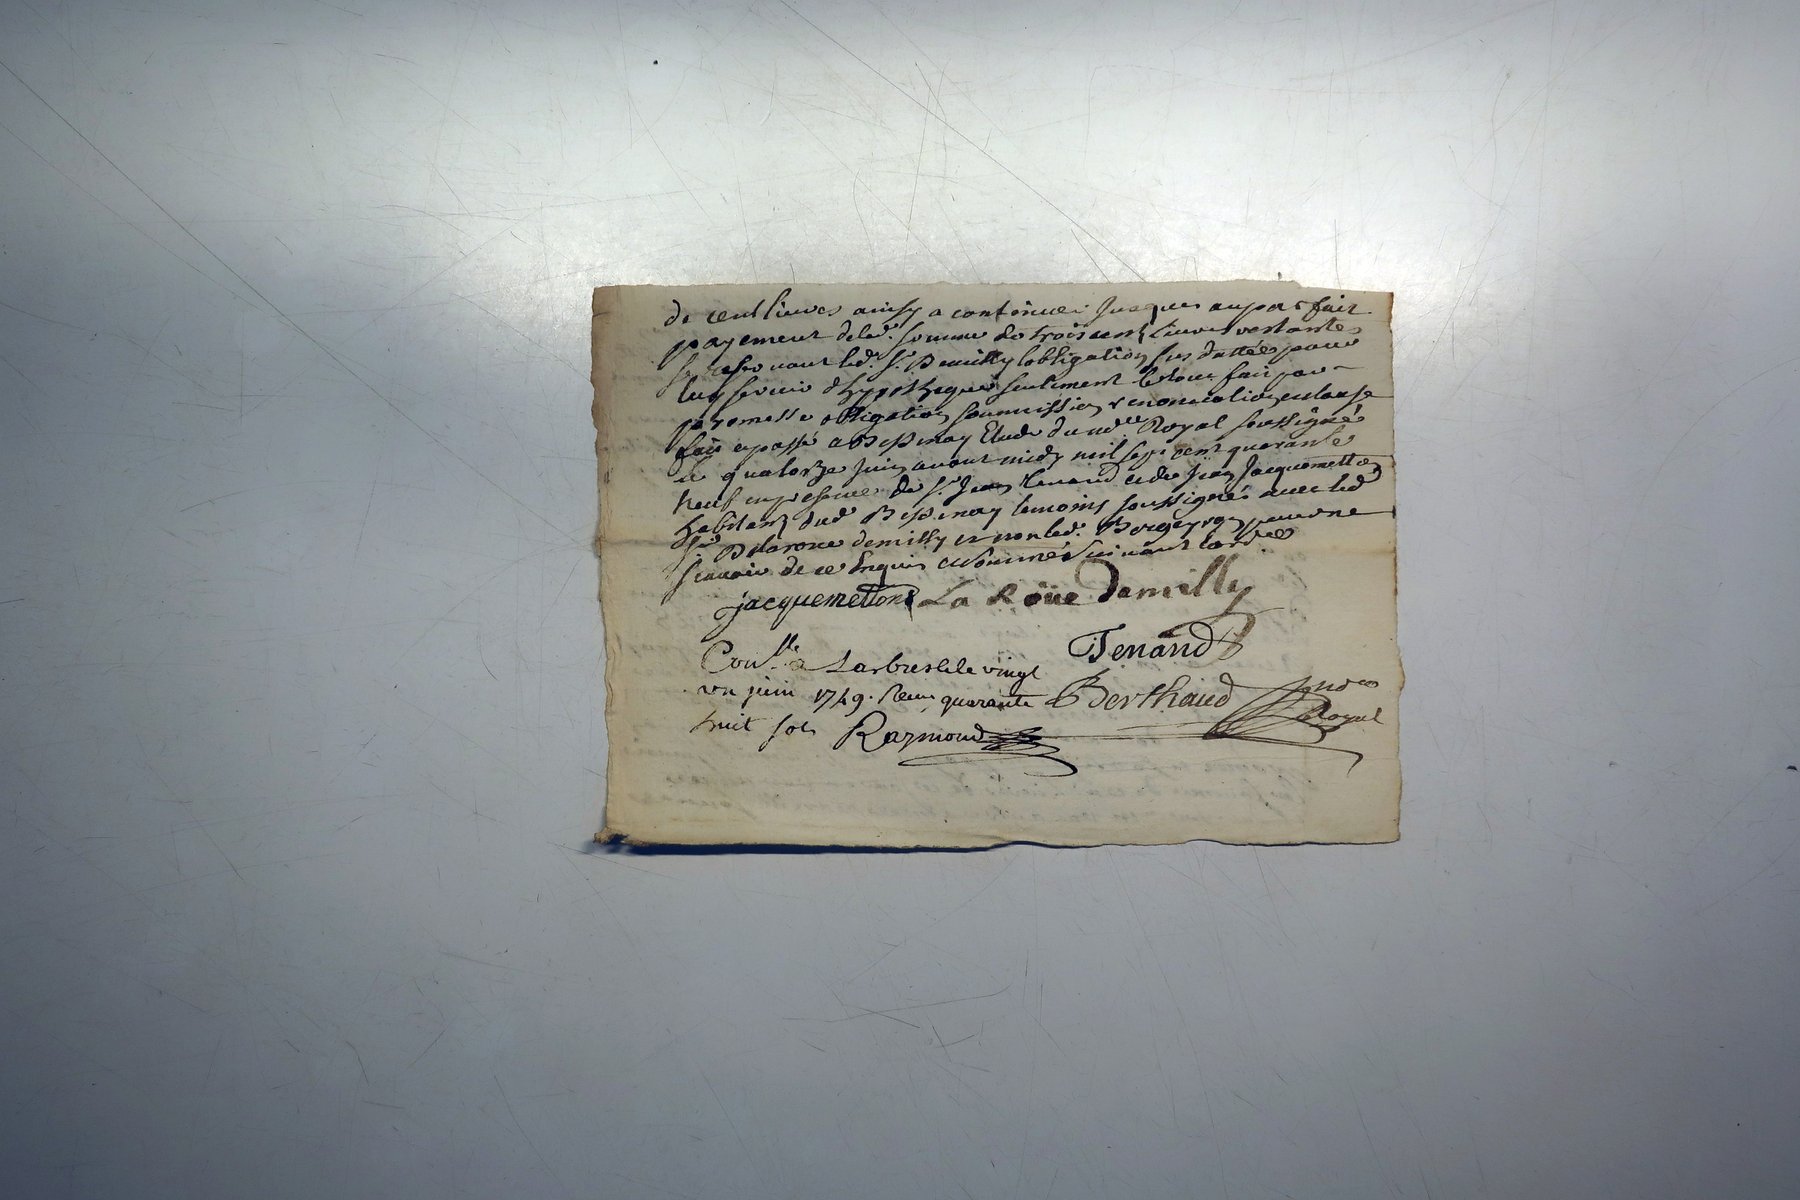 de cent livres ainsy a continuer jusques au parfait
payement de lad. somme de trois cent livres restantes
se reservant led. sr. Demilly lobligation sus dattée pour
luy servir dhypotheque seulement le tout fait par
promesse obligation soumission renonciation clause
fait et passé a Bessenay Etude du no.re Royal soussigné
le quatorze juin avant midy mil sept cent quarante
neuf en presence de sr. Jean Tenand et de Jean Jacquemetton
habitans dud. Bessenay temoins soussignés avec led.
sr. Delaroue demilly et non led. pour ne
scavoir de ce Enquis et sommés suivant lord.ce
jacquemetton La Roüe Demilly
Tenand
Con.llé a Larbresle le vingt
un juin 1749. Reçu quarante Berthaud
huit sols Raymond Royal